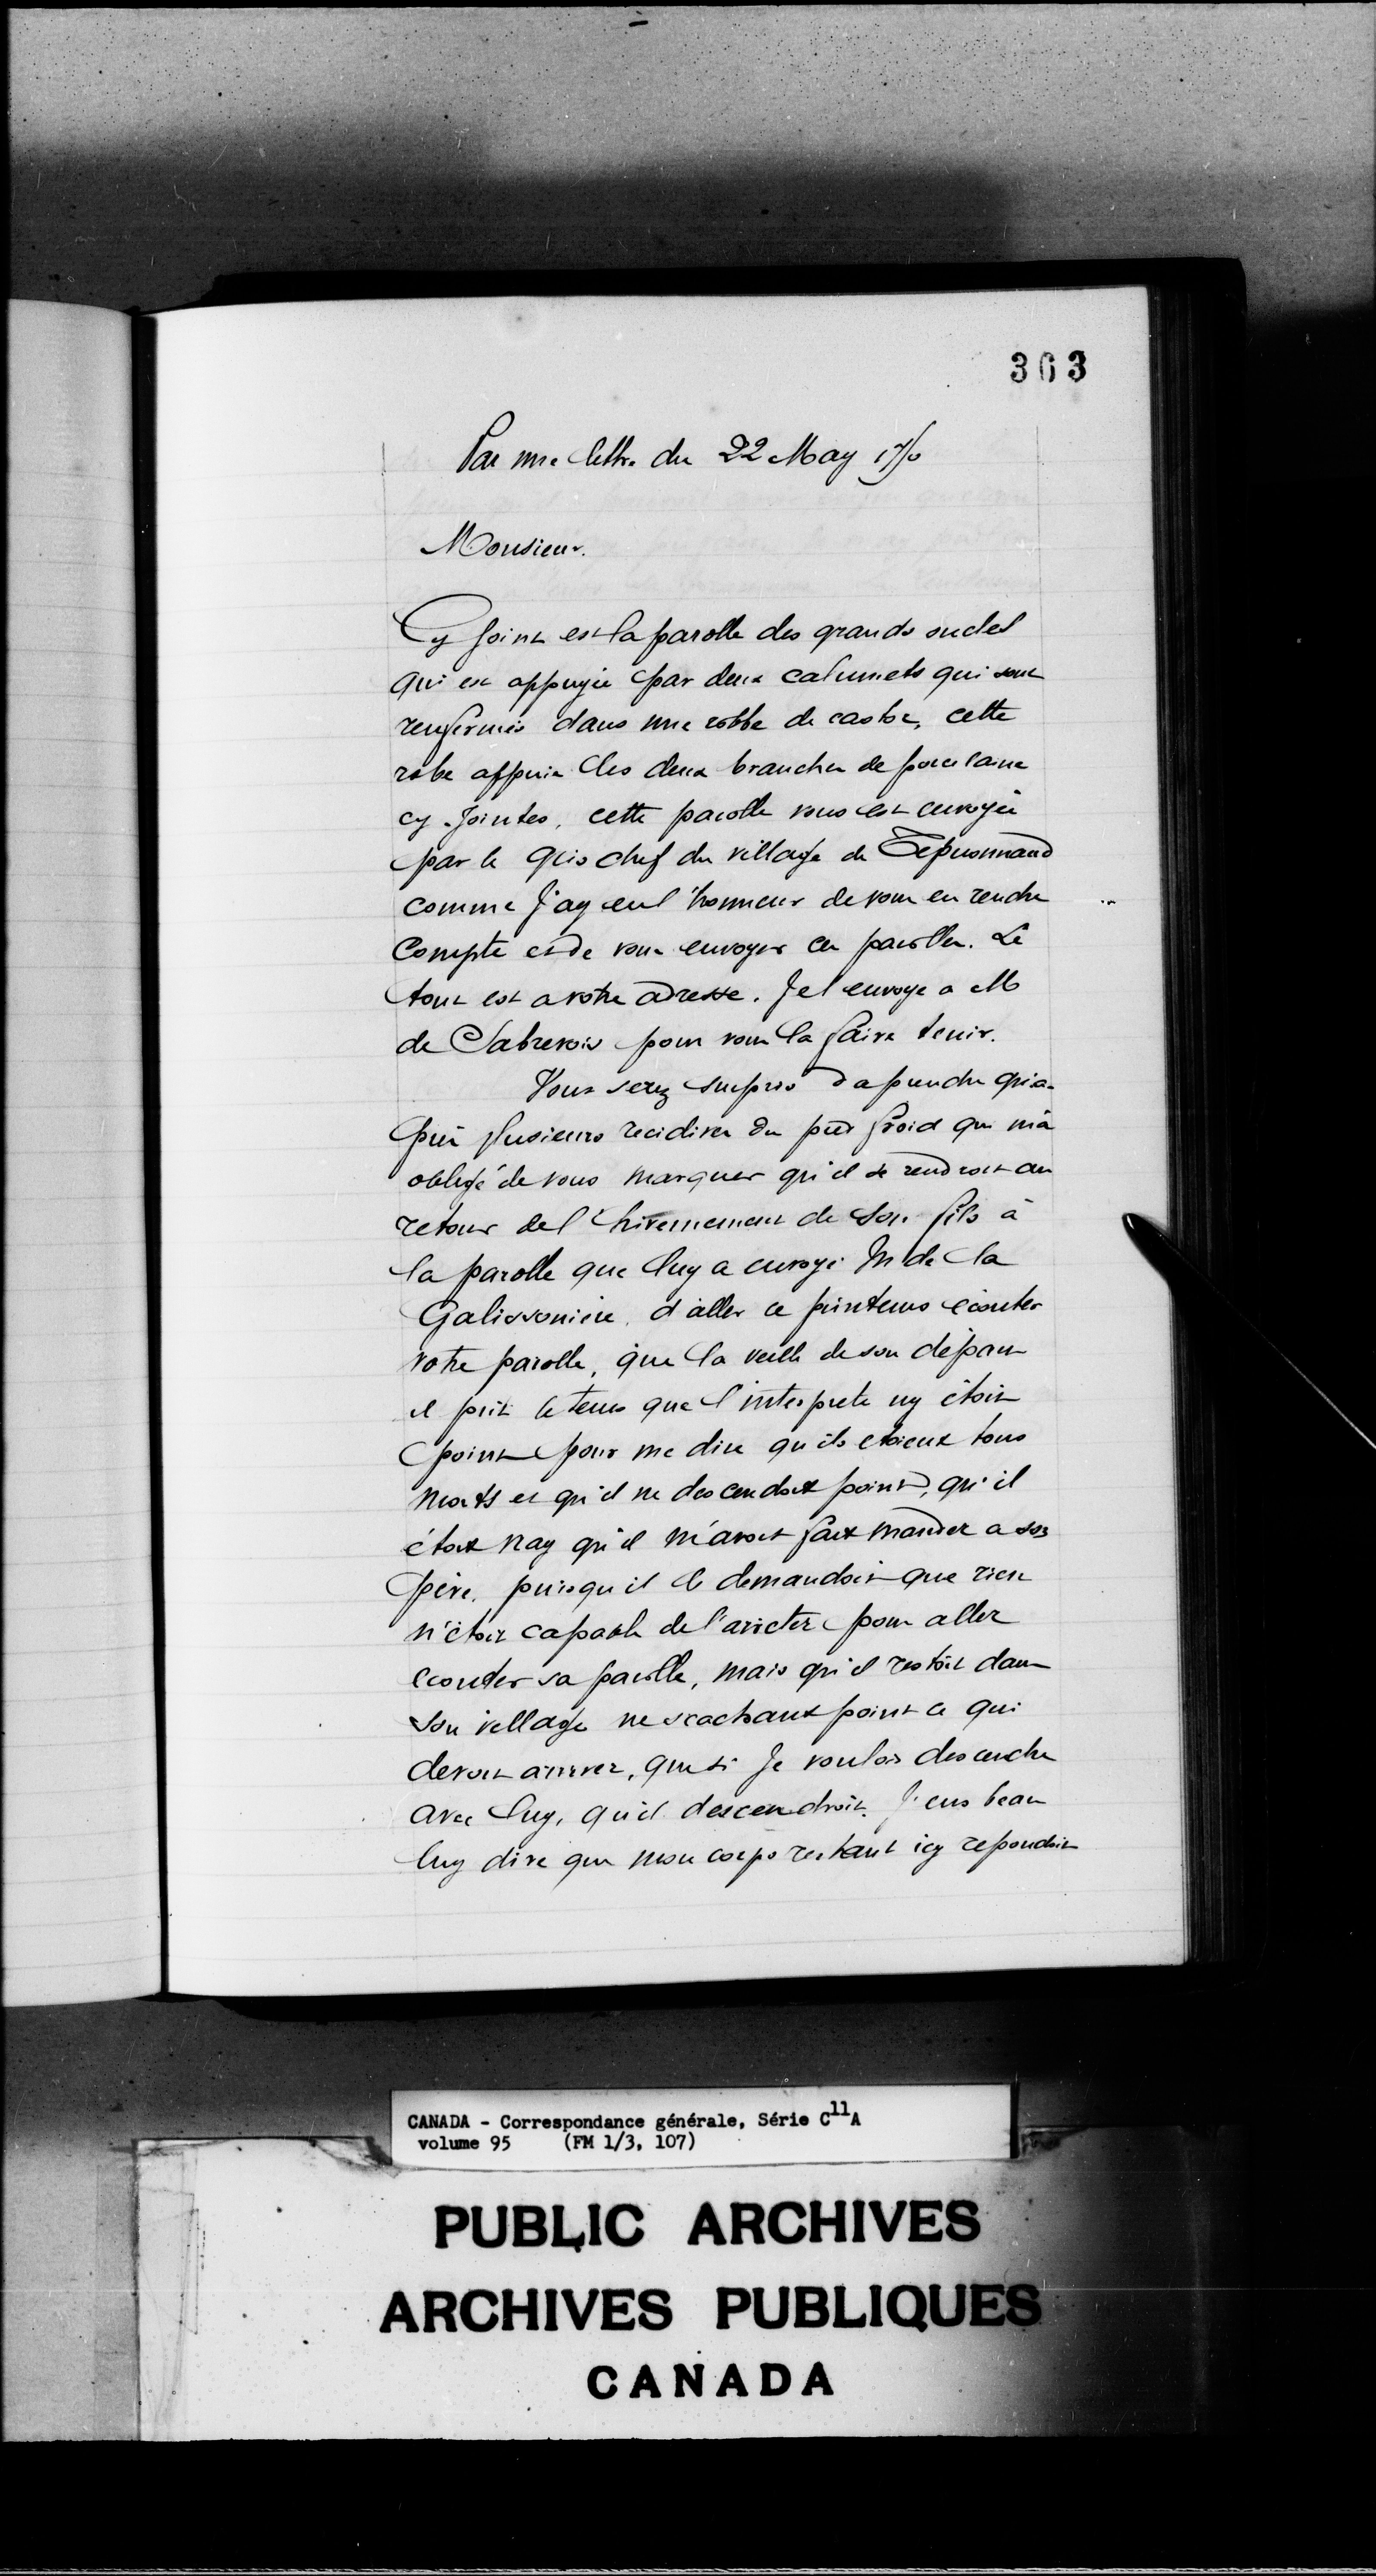 363
Par une lettre du 22 May 1750
Monsieur.
Cy joint est la parolle des grands oudel
qui est appuyée par deux calumets qui sont
renfermés dans une robbe de castor, cette
robe appuie les deux branches de porcelaine
cy-jointes, cette parolle vous est envoyée
par le gros chef du village de
comme j'ay eu l'honneur de vous en rendre
Compte et de vous envoyer ces parolles. Le
tout est a votre adresse. Je l envoye a M
de Sabrevois pour vous la faire tenir.
Vous serez surpris d aprendre qu'a-
près plusieurs recidives du pied froid qui m'a
obligé de vous marquer qu'il se rendroit au
retour de l'hivernement de son fils à
la parolle que luy a envoyé M de la
Galissonière, d'aller ce printems écouter
votre parolle, que la veille de son départ
il prit le tems que l'interprete ny étoit
point pour me dire qu ils etoient tous
morts et qu'il ne descendoit point, qu'il
étoit vray qu'il m'avoit fait mander a son
père, puisqu il le demandoit que rien
n'étoit capable de l'arreter pour aller
ecouter sa parolle, mais qu'il restoit dans
son village ne scachant point ce qui
devoit arriver, que si Je voulois descendre
avec luy, qu'il descendroit. J'eus beau
luy dire que mon corps restant icy repondoit
CANADA - Correspondance générale, Série C11A
volume 95 (FM 1/3, 107)
PUBLIC ARCHIVES
ARCHIVES PUBLIQUES
CANADA